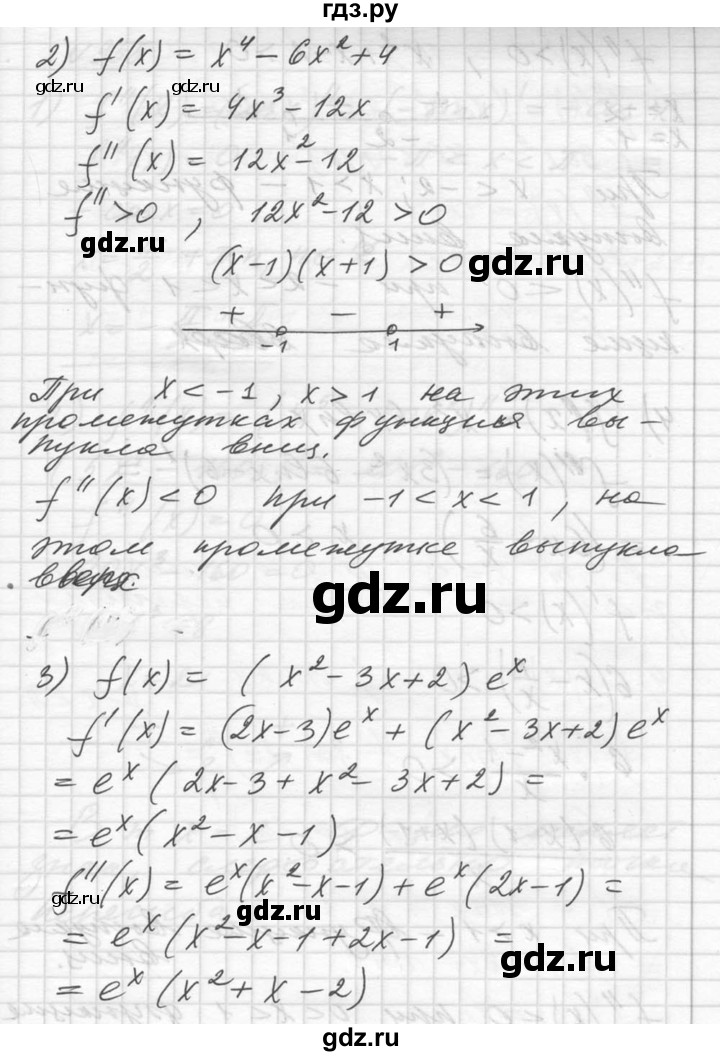 гдз.ру
2) f(x) = x⁴ - 6x² + 4
gdz.ru gdz.ru
f'(x) = 4x³ - 12x
f''(x) = 12x² - 12
f'' > 0 , 12x² - 12 > 0
gdz.ru
(x-1)(x+1) > 0
gdz.ru
+ - +
-1 1
При x < -1, x > 1 на этих
промежутках функция вы-
пукла вниз.
f''(x) < 0 при -1 < x < 1, на
этом промежутке выпукла
вверх.
gdz.ru
3) f(x) = (x² - 3x + 2) eˣ
f'(x) = (2x-3)eˣ + (x² - 3x + 2) eˣ
= eˣ (2x - 3 + x² - 3x + 2) =
= eˣ (x² - x - 1)
f''(x) = eˣ(x² - x - 1) + eˣ (2x - 1) =
gdz.ru gdz.ru
= eˣ (x² - x - 1 + 2x - 1) =
gdz.ru
= eˣ (x² + x - 2)
gdz.ru